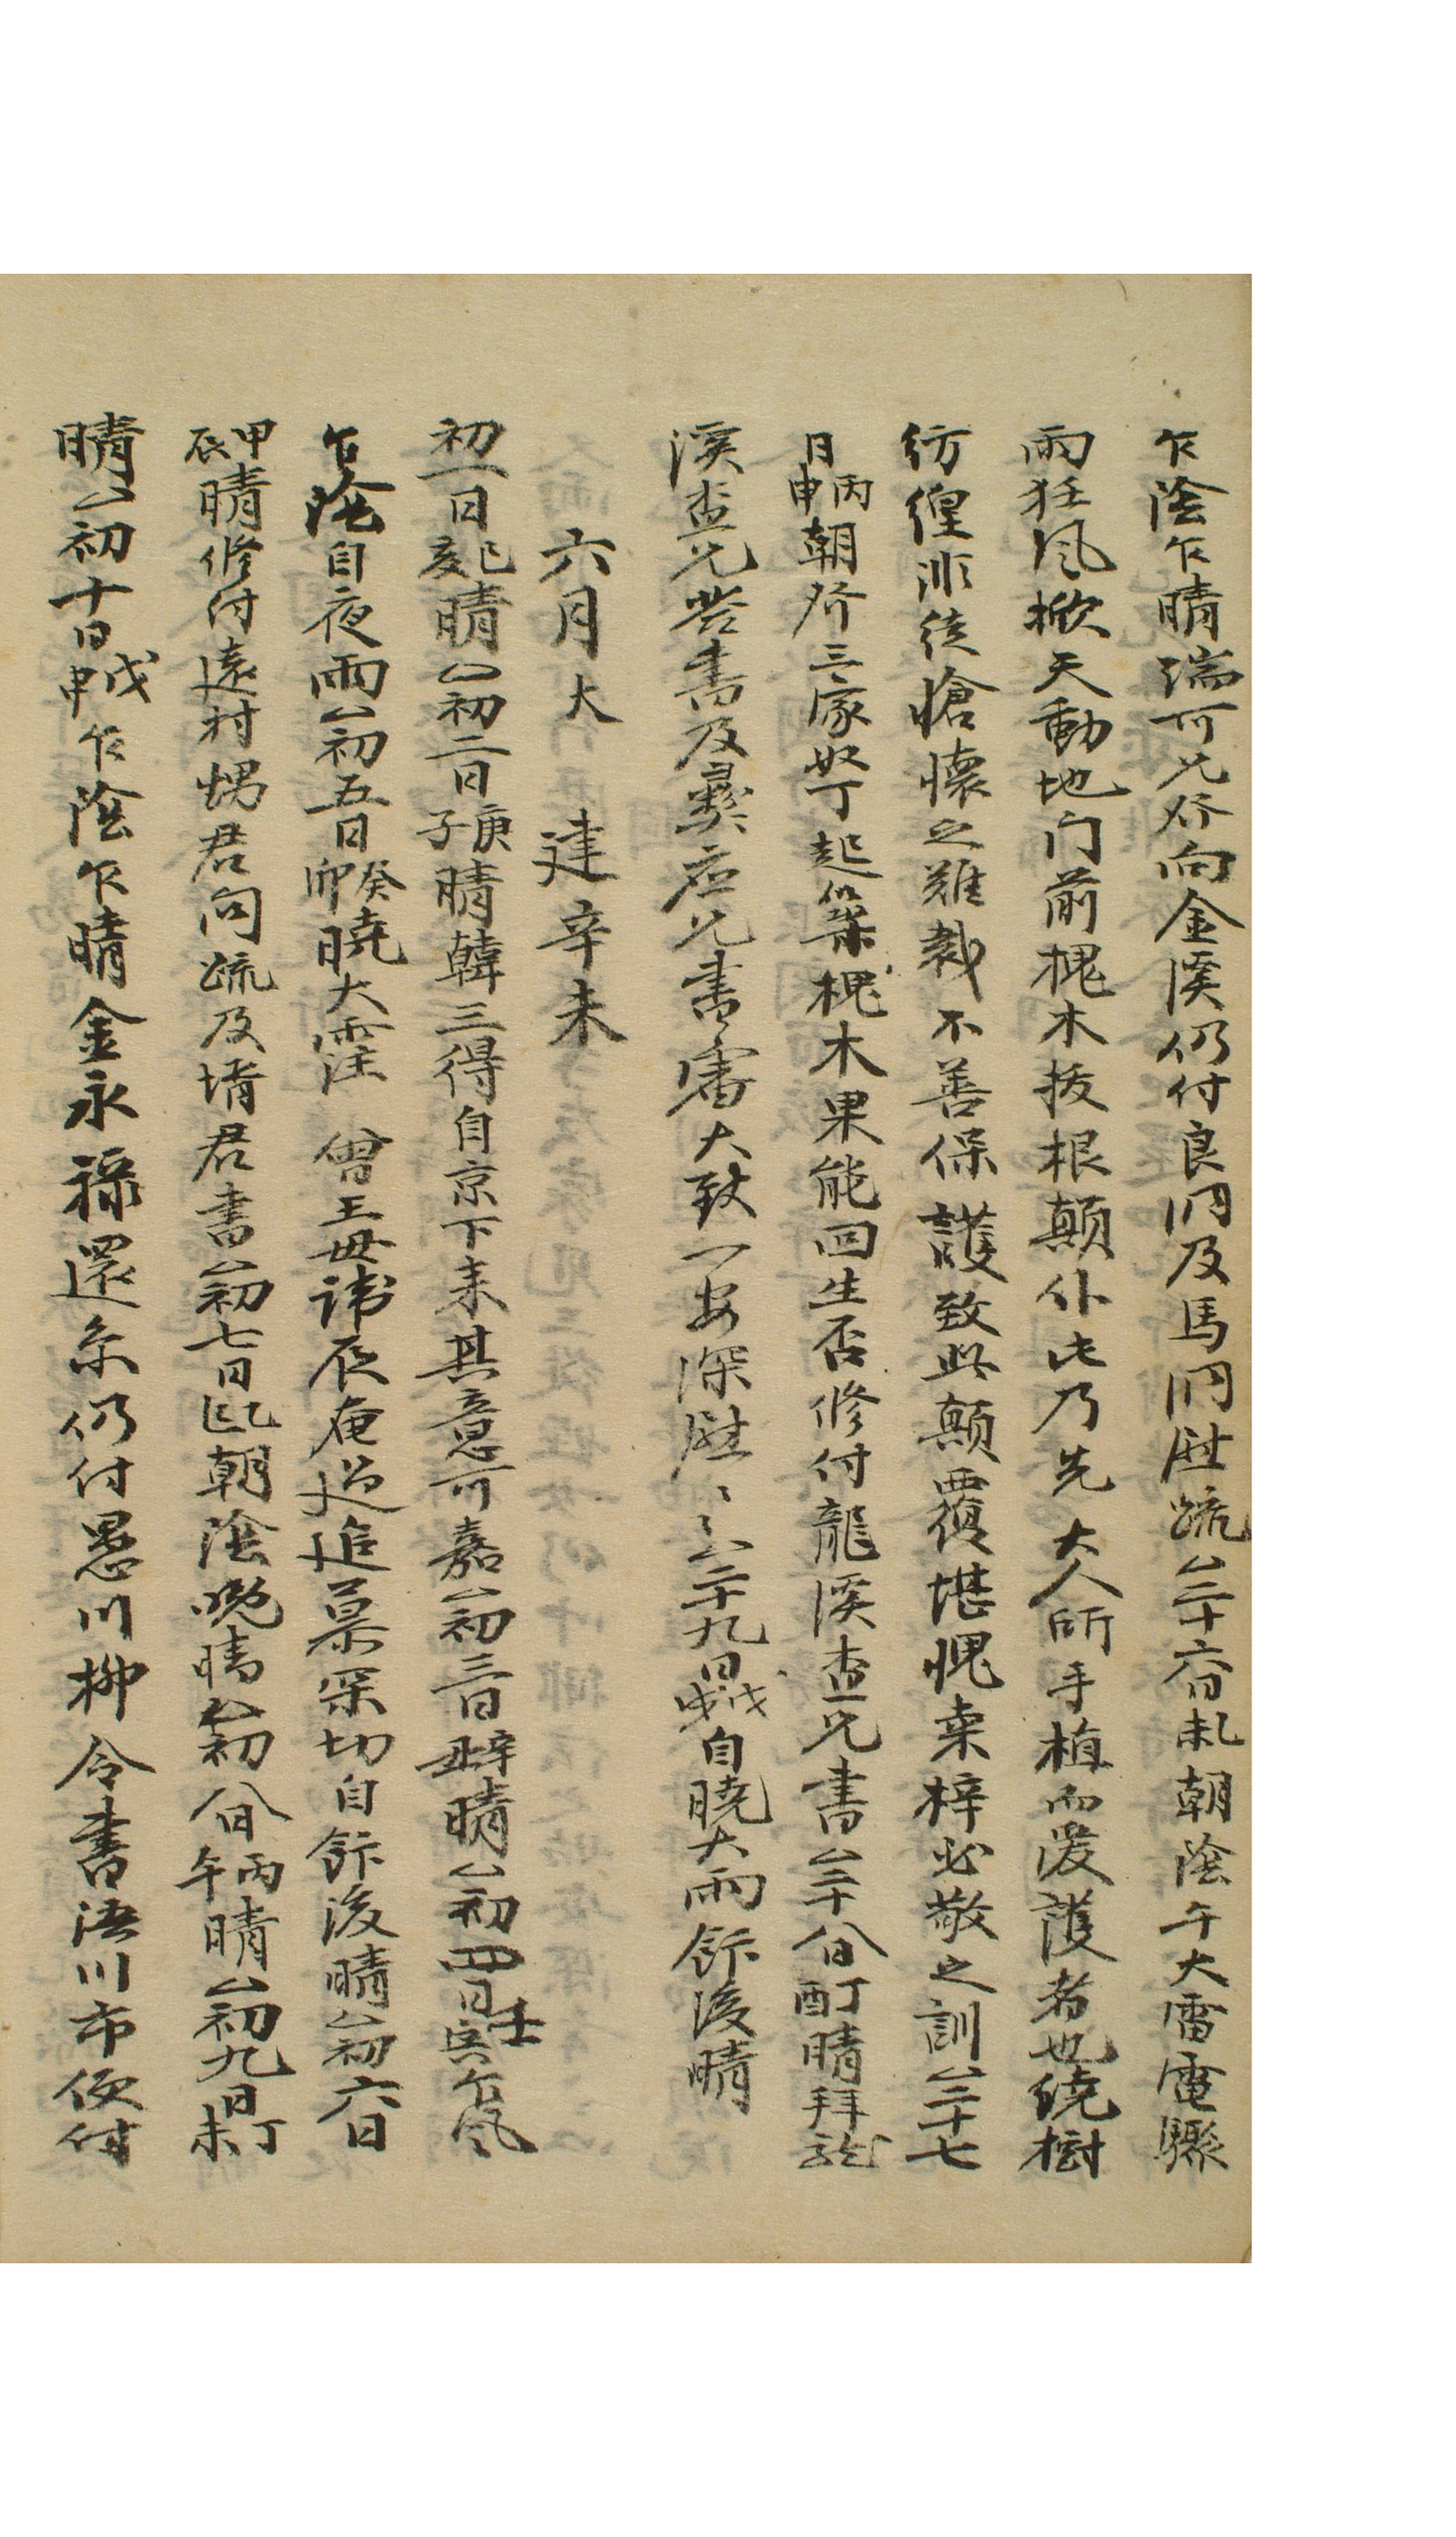 乍陰乍晴瑞可兄發向金溪仍付良洞及馬洞慰疏△二十六日乙未朝陰午大雷電驟
雨狂風掀天動地门前槐木拔根顛仆此乃先 大人所手植而愛護者也繞樹
彷徨非徒愴懷之難裁不善保護致此顛覆堪愧桒梓必敬之訓△二十七
日丙申朝發三家奴丁起築槐木果能回生否修付龍溪查兄書△二十八日丁酉晴拜龍
溪查兄答書及彛应兄書審大致一安深慰〻〻△二十九日戊戌自曉大雨飯後晴
六月大 建辛未
初一日己亥晴△初二日庚子晴韓三得自京下来其意可嘉△初三日辛丑晴△初四日壬寅乍風
乍陰自夜雨△初五日癸卯曉大霔 曾王母諱辰奄過追慕罙切自飯後晴△初六日
甲辰晴修付遠村甥君问疏及壻君書△初七日乙巳朝陰晩晴△初八日丙午晴△初九日丁未
晴△初十日戊申乍陰乍晴金永祿還京仍付愚川柳令書浯川市便付